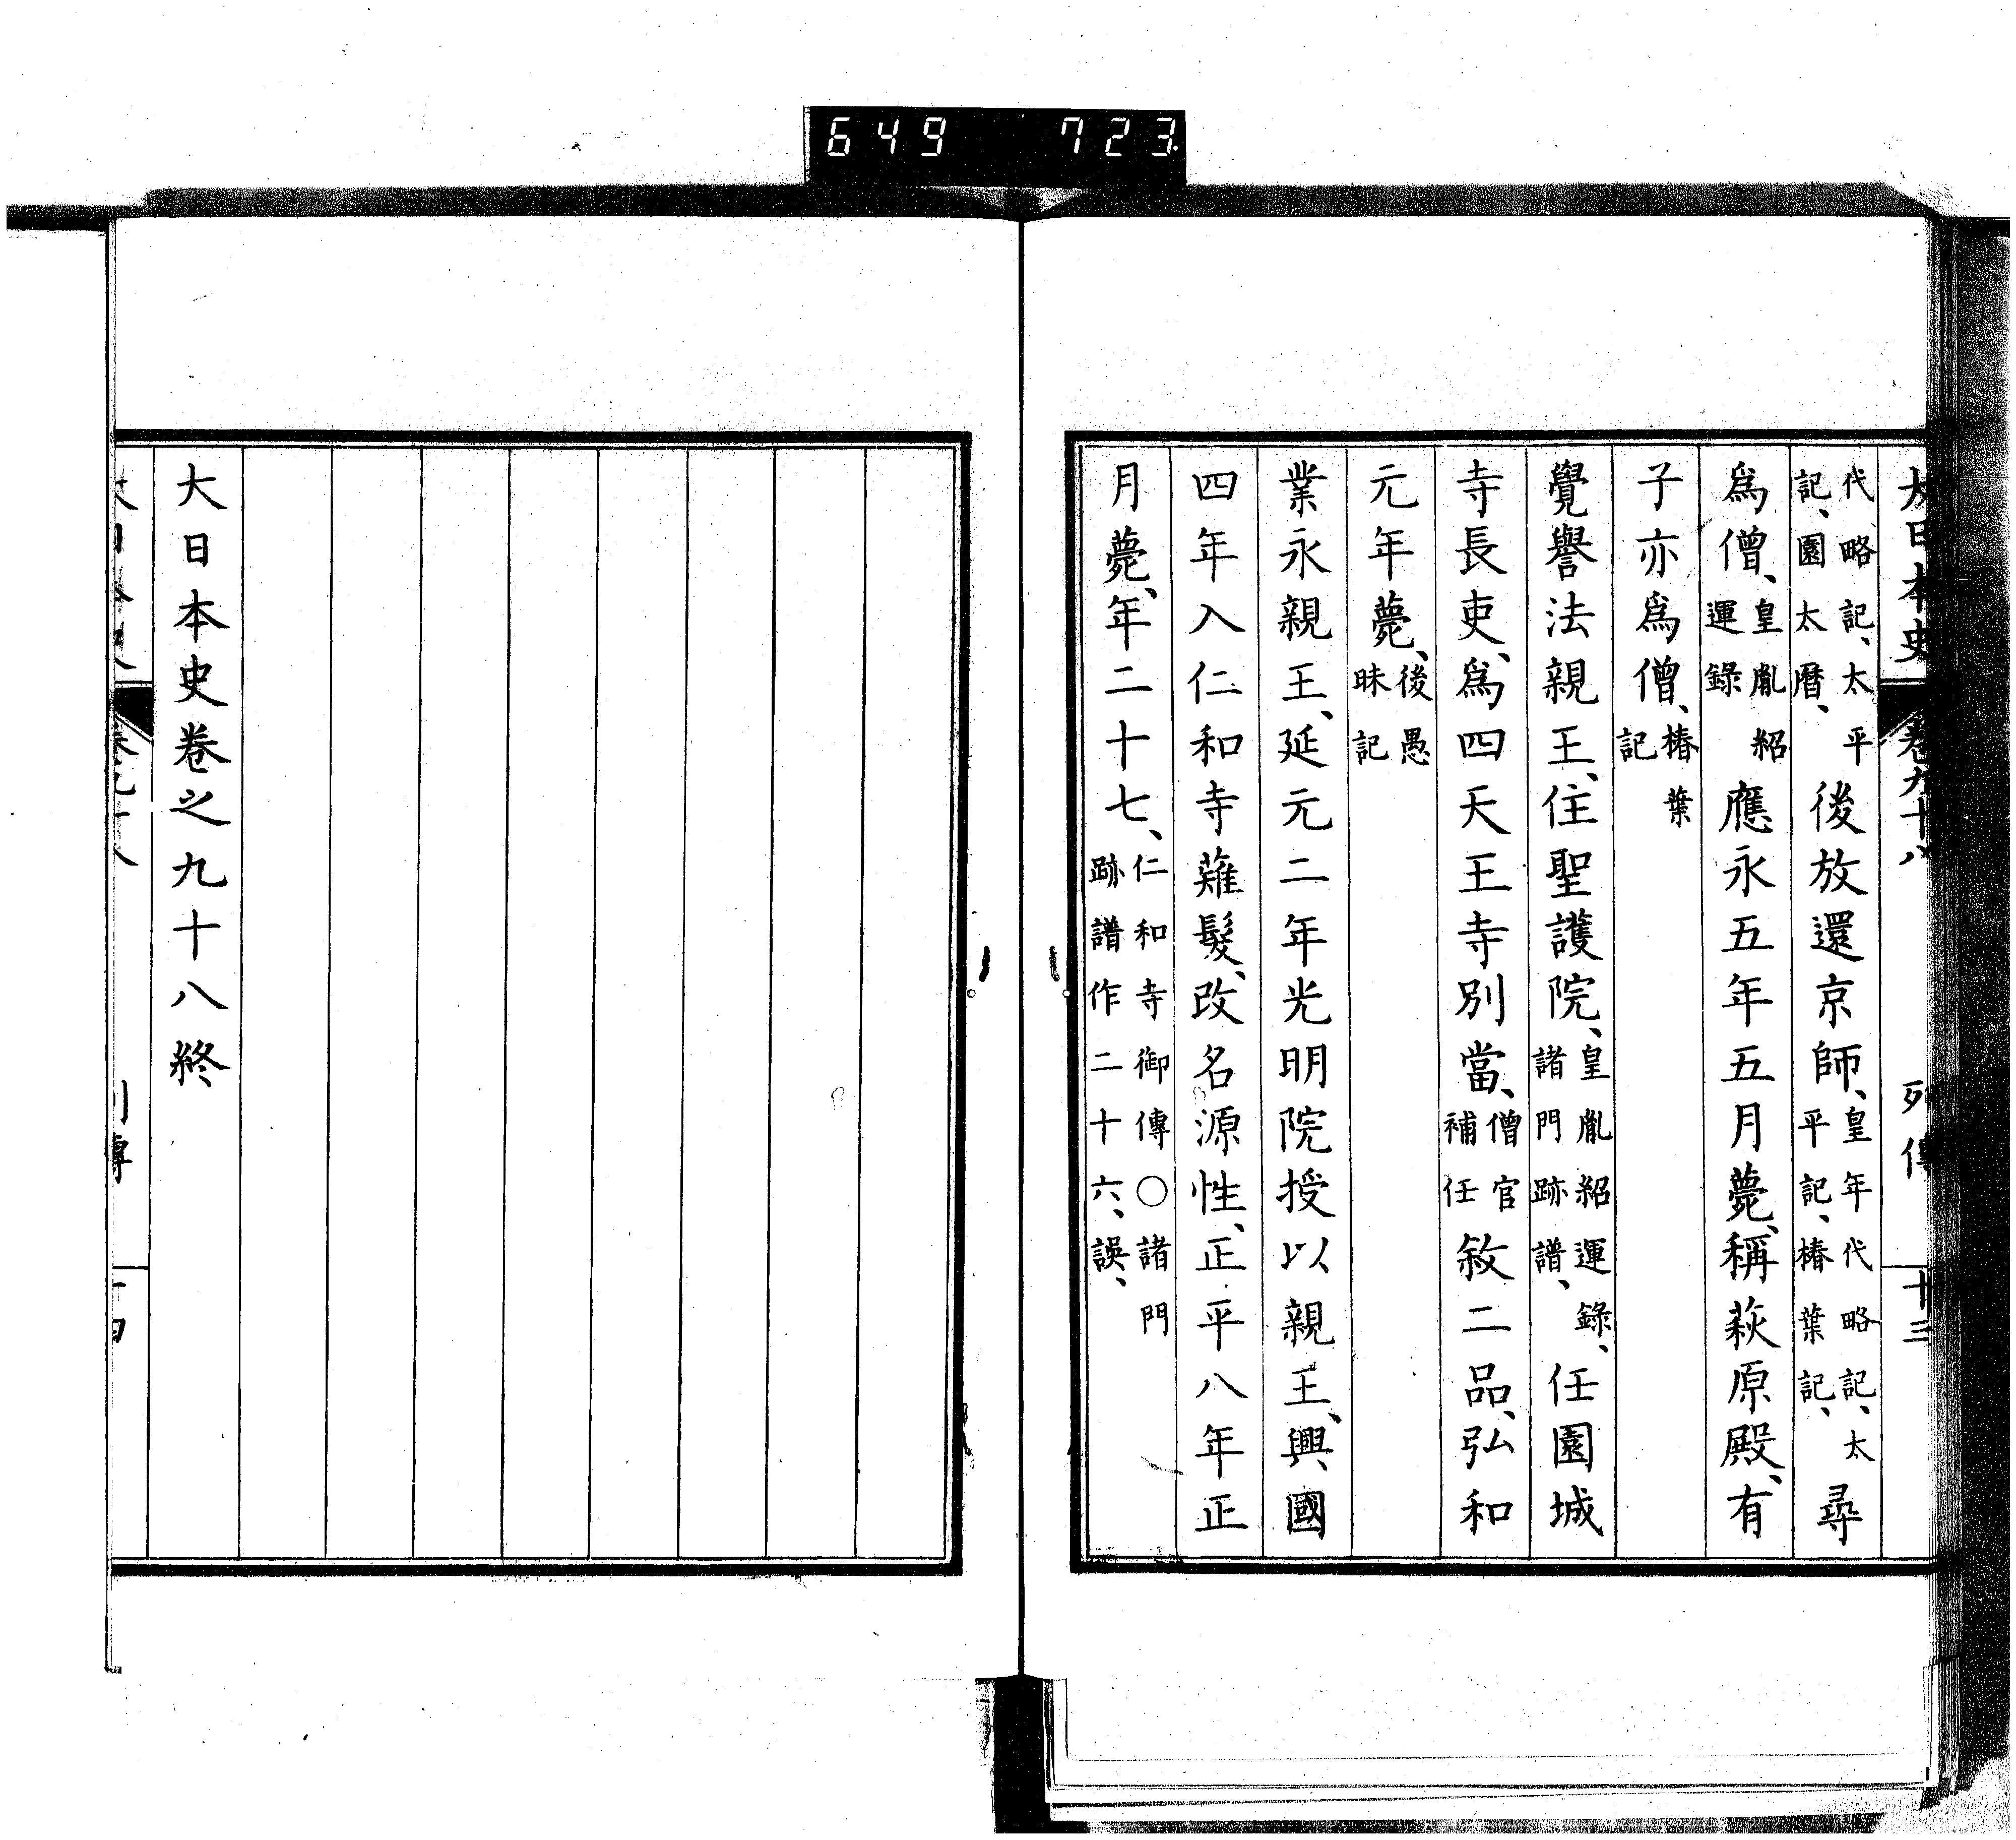 649 723
大日本史 卷九十八 列傳 十三
代略記、太平記、園太曆、後放還京師、皇年代略記、太平記、椿葉記、尋
爲僧、皇胤紹運錄應永五年五月薨、稱萩原殿、有
子亦爲僧、椿葉記
覺譽法親王、住聖護院、皇胤紹運錄、諸門跡譜、任園城
寺長吏、爲四天王寺別當、僧官補任敘二品、弘和
元年薨、後愚昧記
業永親王、延元二年光明院授以親王、興國
四年入仁和寺薙髮、改名源性、正平八年正
月薨、年二十七、仁和寺御傳○諸門跡譜作二十六、誤、
大日本史卷之九十八終